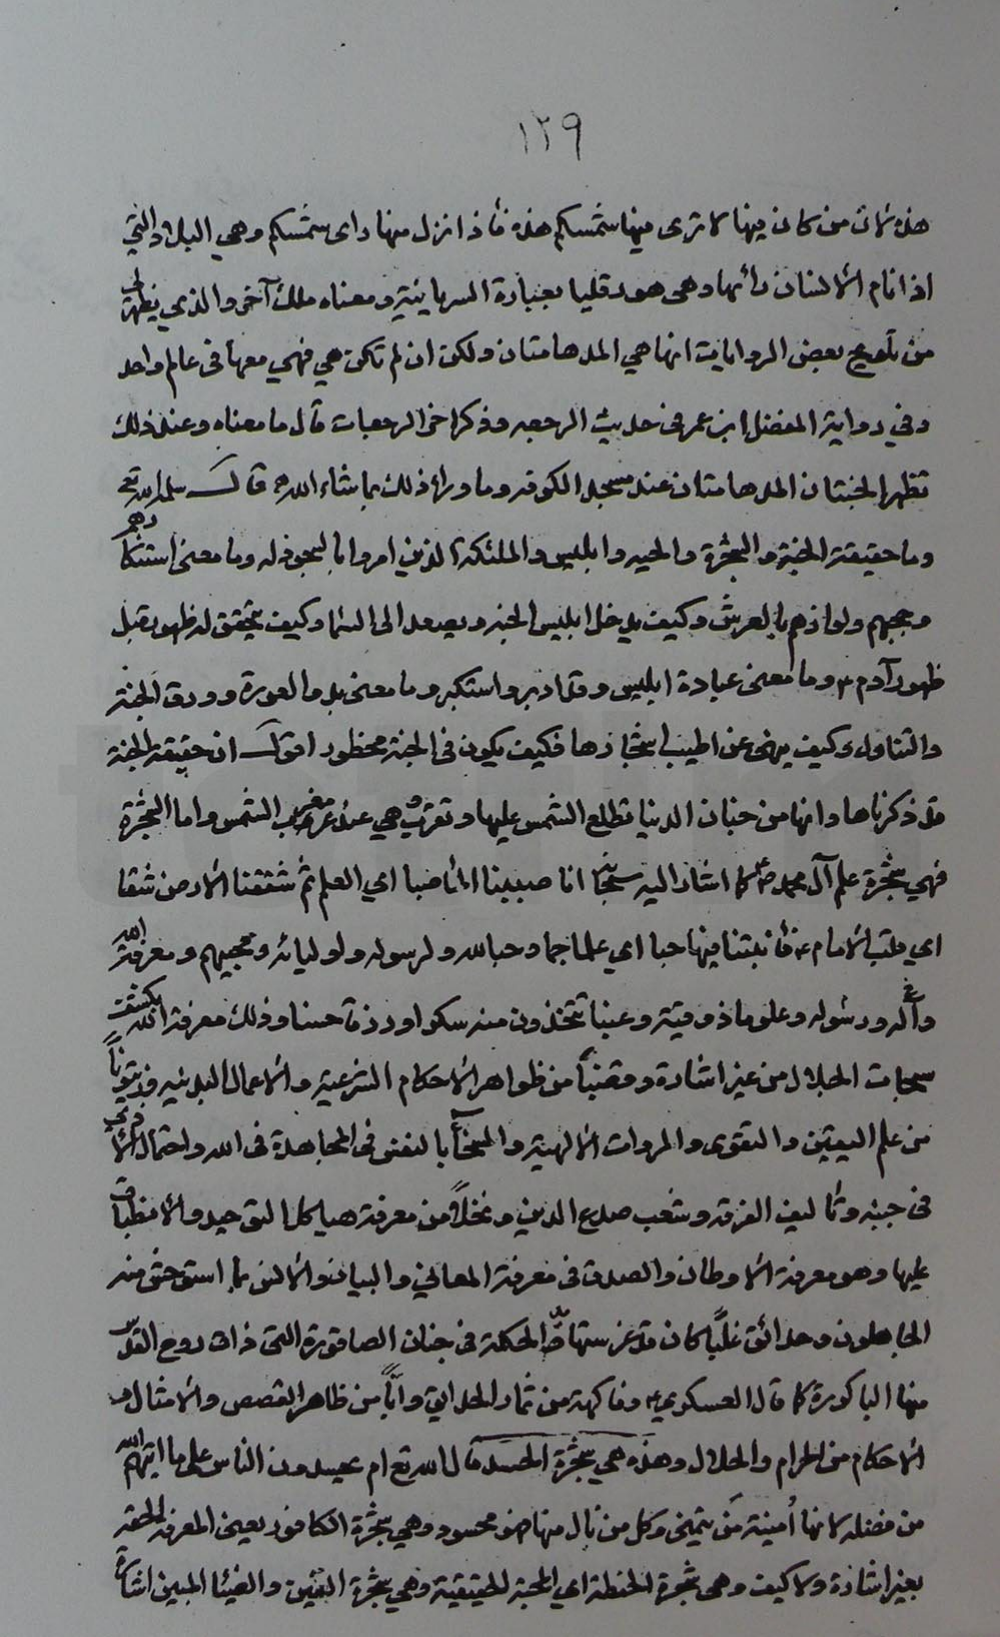 ١٢٩
هذه لان من كان فيها لا ترى فيها شمسكم هذه فاذا نزل منها راى شمسكم وهي البلاد التي
اذا نام الانسان رأيها وهى هورقليا بعبارة السريانية ومعناه ملك آخر والذي يظهر لى
من تلويح بعض الروايات انها هي المدهامتان ولكن ان لم تكن هي فهي معها فى عالم واحد
وفي رواية المفضل ابن عمر فى حديث الرجعه وذكر اخر الرجعات قال ما معناه وعند ذلك
تظهر الجنتان المدهامتان عند مسجد الكوفه وما وراء ذلك بما شاء الله قال سلمه الله تع
وما حقيقة الجنة والشجرة والحيه وابليس والملئكة الذين امروا بالسجود له وما معنى استنكارهم
وحجبهم ولواذهم بالعرش وكيف يدخل ابليس الجنه ويصعد الى السماء وكيف يتحقق له ظهور قبل
ظهور آدم ع وما معنى عبادة ابليس وقد ادبر واستكبر وما معنى بدو العورة وورق الجنة
والتناول وكيف ينهى عن اطيب اشجارها فكيف يكون فى الجنة محظور اقول ان حقيقة الجنة
قد ذكرناها وانها من جنان الدنيا تطلع الشمس عليها وتغرب وهي عند مغرب الشمس واما الشجرة
فهي شجرة علم آل محمد ص كما اشار اليه سبحانه انا صببنا الماء صبا اي العلم ثم شققنا الارض شقا
اي قلب الامام ع فانبتنا فيها حبا اي علما جما وحبا لله ولرسوله ولاوليائه ومحبيهم ومعرفة الله
وآله ورسوله وعلوما ذوقية وعنبا تتخذون منه سكرا ورزقا حسنا وذلك معرفة الله بكشف
سبحات الجلال من غير اشارة وقضبا من ظواهر الاحكام الشرعية والاعمال البدنيه وزيتونا
من علم اليقين والتقوى والمروات الالهية والسخاء بالنفس فى المجاهدة فى الله واحتمال الاذى
فى جنبه وتاليف الفرقه وشعب صدع الدين ونخلا من معرفة هياكل التوحيد والانطباق
عليها وهو معرفة الاوطان والصدق فى معرفة المعاني والبيان والانس بما استوحش منه
الجاهلون وحدائق غلبا كان قد غرستها الحكمة فى جنان الصاقورة التى ذاق روح القدس
منها الباكورة كما قال العسكري ع وفاكهة من ثمار الحدايق وابا من ظاهر القصص والامثال و
الاحكام من الحرام والحلال وهذه هي شجرة الحسد قال الله تع ام يحسدون الناس على ما اتيهم الله
من فضله لانها امنية من يتمنى وكل من نال منها فهو محسود وهي شجرة الكافور يعين المعرفة الحقه
بغير اشارة ولا كيف وهى شجرة الحنطة اي المحبة الحقيقية وهي شجرة التين والضياء المبين اشارة